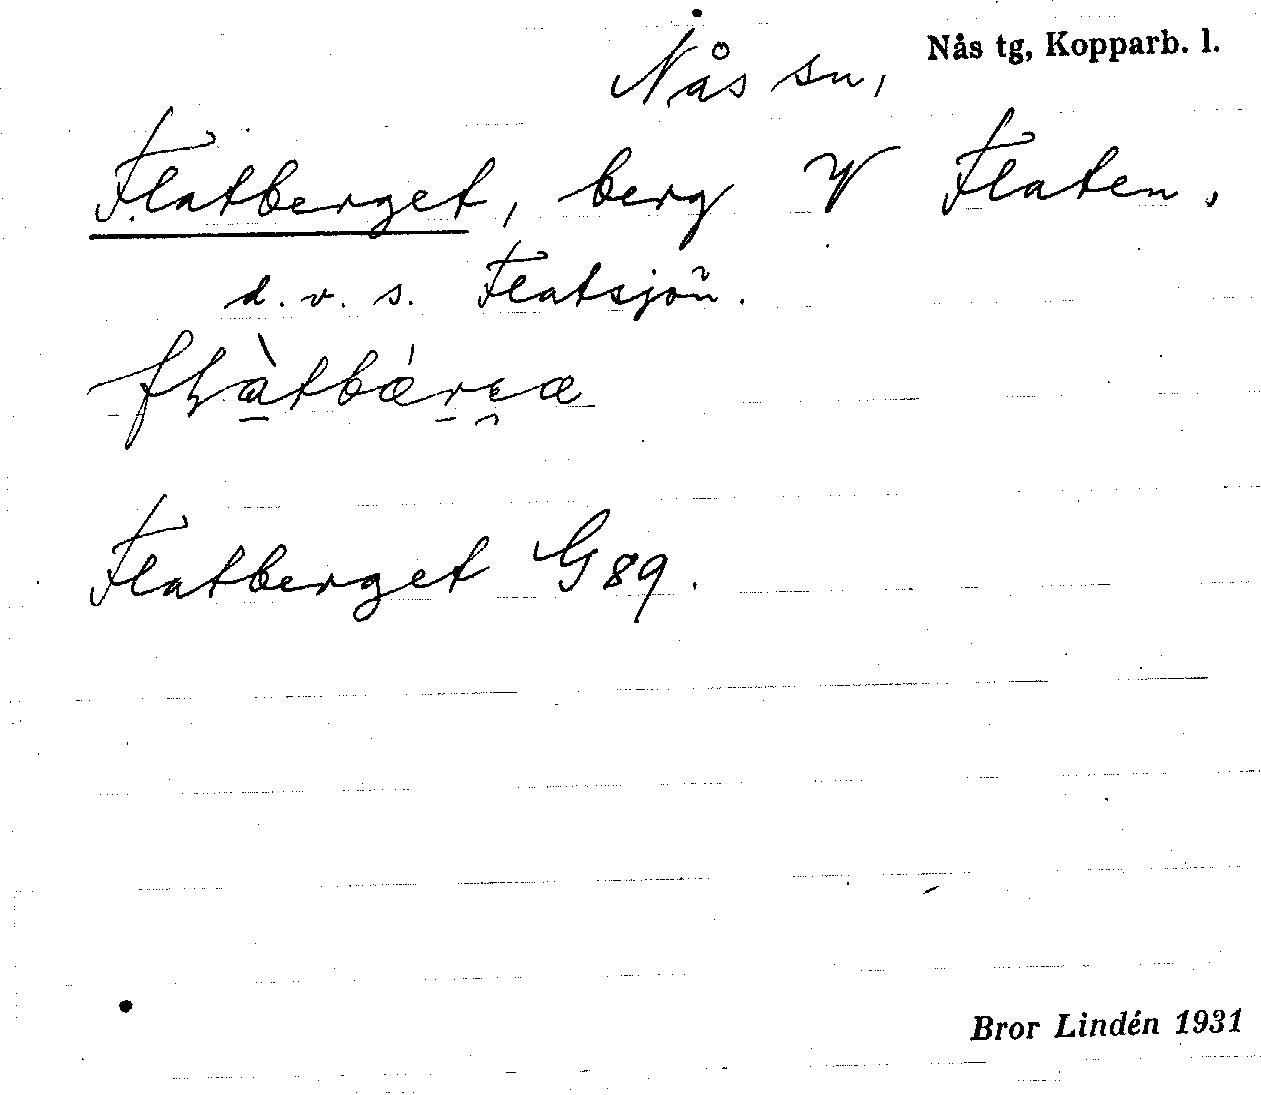 Nås tg, Kopparb. l.
Nås sn,
Flatberget, berg V Flaten,
d. v. s. Flatsjön.
Flatberget G 89.
Bror Lindén 1931